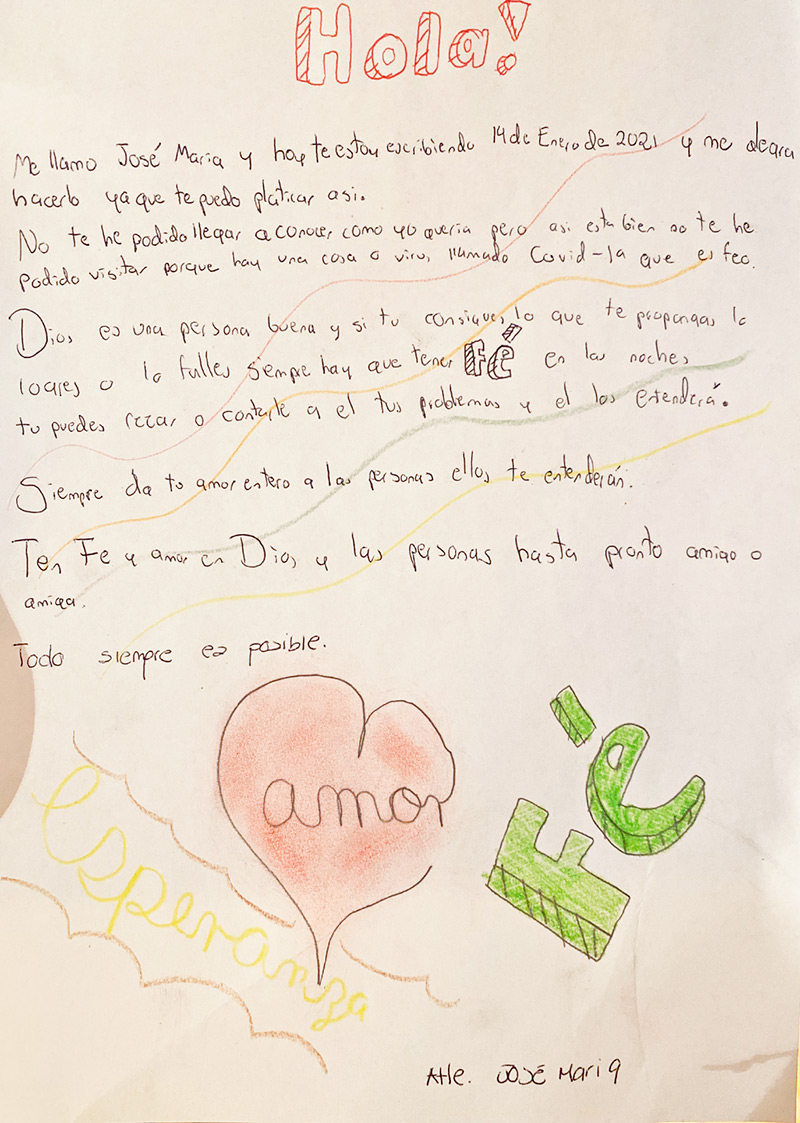 Hola!
Me llamo José Maria y hoy te estoy escribiendo 14 de Enero de 2021 y me alegra
hacerlo ya que te puedo platicar asi.
No te he podido llegar a conocer como yo queria pero asi esta bien no te he
podido visitar porque hay una cosa o virus llamado Covid-19 que es feo.
Dios es una persona buena y si tu consigues lo que te propongas lo
logres o lo falles siempre hay que tener Fé en las noches
tu puedes rezar o contarle a el tus problemas y el los entenderá.
Siempre da tu amor entero a las personas ellos te entenderán.
Ten Fe y amor en Dios y las personas hasta pronto amigo o
amiga.
Todo siempre es posible.
amor
Fé
Esperanza
Atte. José Maria